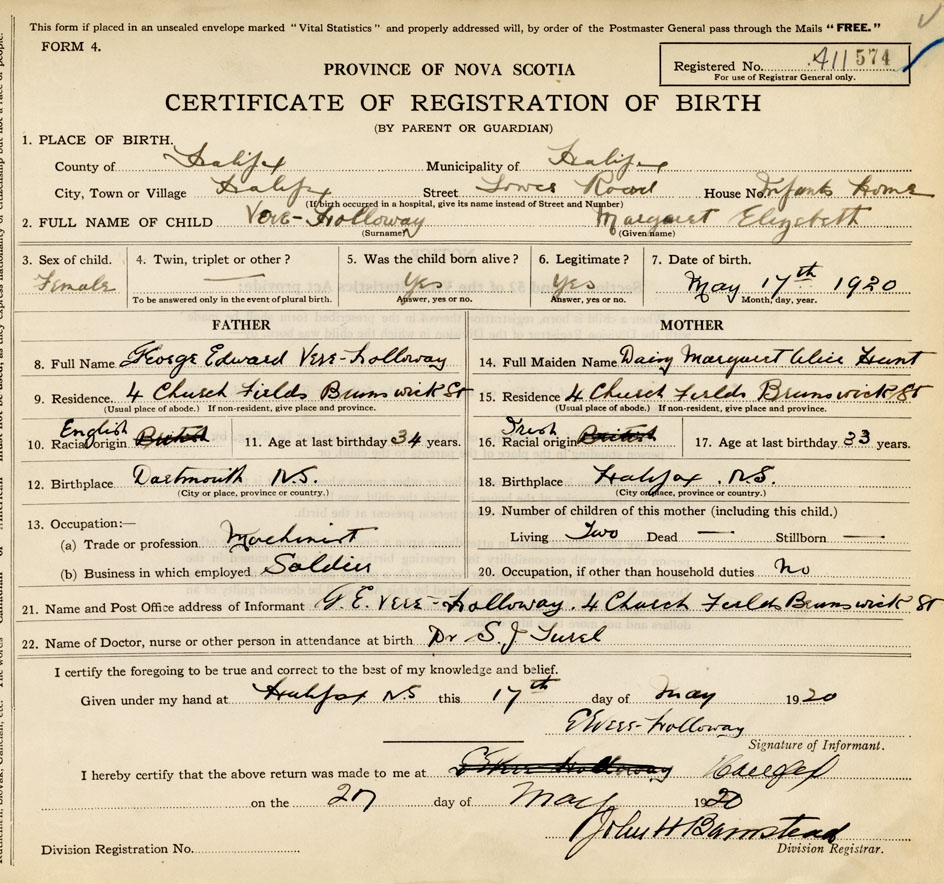 This form if placed in an unsealed envelope marked "Vital Statistics" and properly addressed will, by order of the Postmaster General pass through the Mails "FREE."
FORM 4.
Registered No. 411 574
For use of Registrar General only.
PROVINCE OF NOVA SCOTIA
CERTIFICATE OF REGISTRATION OF BIRTH
(BY PARENT OR GUARDIAN)
1. PLACE OF BIRTH.
County of Halifax Municipality of Halifax
City, Town or Village Halifax Street Tower Road House No. Infants Home
(If birth occurred in a hospital, give its name instead of Street and Number)
2. FULL NAME OF CHILD Vere-Holloway Margaret Elizabeth
(Surname) (Given name)
3. Sex of child. 4. Twin, triplet or other? 5. Was the child born alive? 6. Legitimate? 7. Date of birth.
Female — Yes Yes May 17th 1920
To be answered only in the event of plural birth. Answer, yes or no. Answer, yes or no. Month, day, year.
FATHER MOTHER
8. Full Name George Edward Vere-Holloway 14. Full Maiden Name Daisy Margaret Alice Hunt
9. Residence. 4 Church Fields Brunswick St 15. Residence. 4 Church Fields Brunswick St
(Usual place of abode.) If non-resident, give place and province. (Usual place of abode.) If non-resident, give place and province.
English Irish
10. Racial origin British 11. Age at last birthday 34 years. 16. Racial origin British 17. Age at last birthday 33 years.
12. Birthplace Dartmouth N.S. 18. Birthplace Halifax N.S.
(City or place, province or country.) (City or place, province or country.)
13. Occupation:— 19. Number of children of this mother (including this child.)
(a) Trade or profession Machinist Living Two Dead — Stillborn —
(b) Business in which employed Soldier 20. Occupation, if other than household duties No
21. Name and Post Office address of Informant G. E. Vere-Holloway. 4 Church Fields Brunswick St
22. Name of Doctor, nurse or other person in attendance at birth Dr S. J.
I certify the foregoing to be true and correct to the best of my knowledge and belief.
Given under my hand at Halifax NS this 17th day of May 1920
Vere-Holloway
Signature of Informant.
I hereby certify that the above return was made to me at Holloway Halifax
on the 27 day of May 1920
John H Barnstead
Division Registration No. Division Registrar.